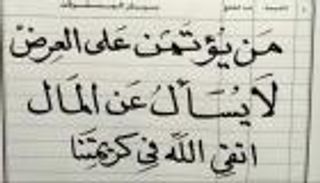 مَن يُؤتَمَن عَلى العِرضْ
لَا يُسَأَلُ عَن المَال
اتقي اللَّه في كريمتِنَا